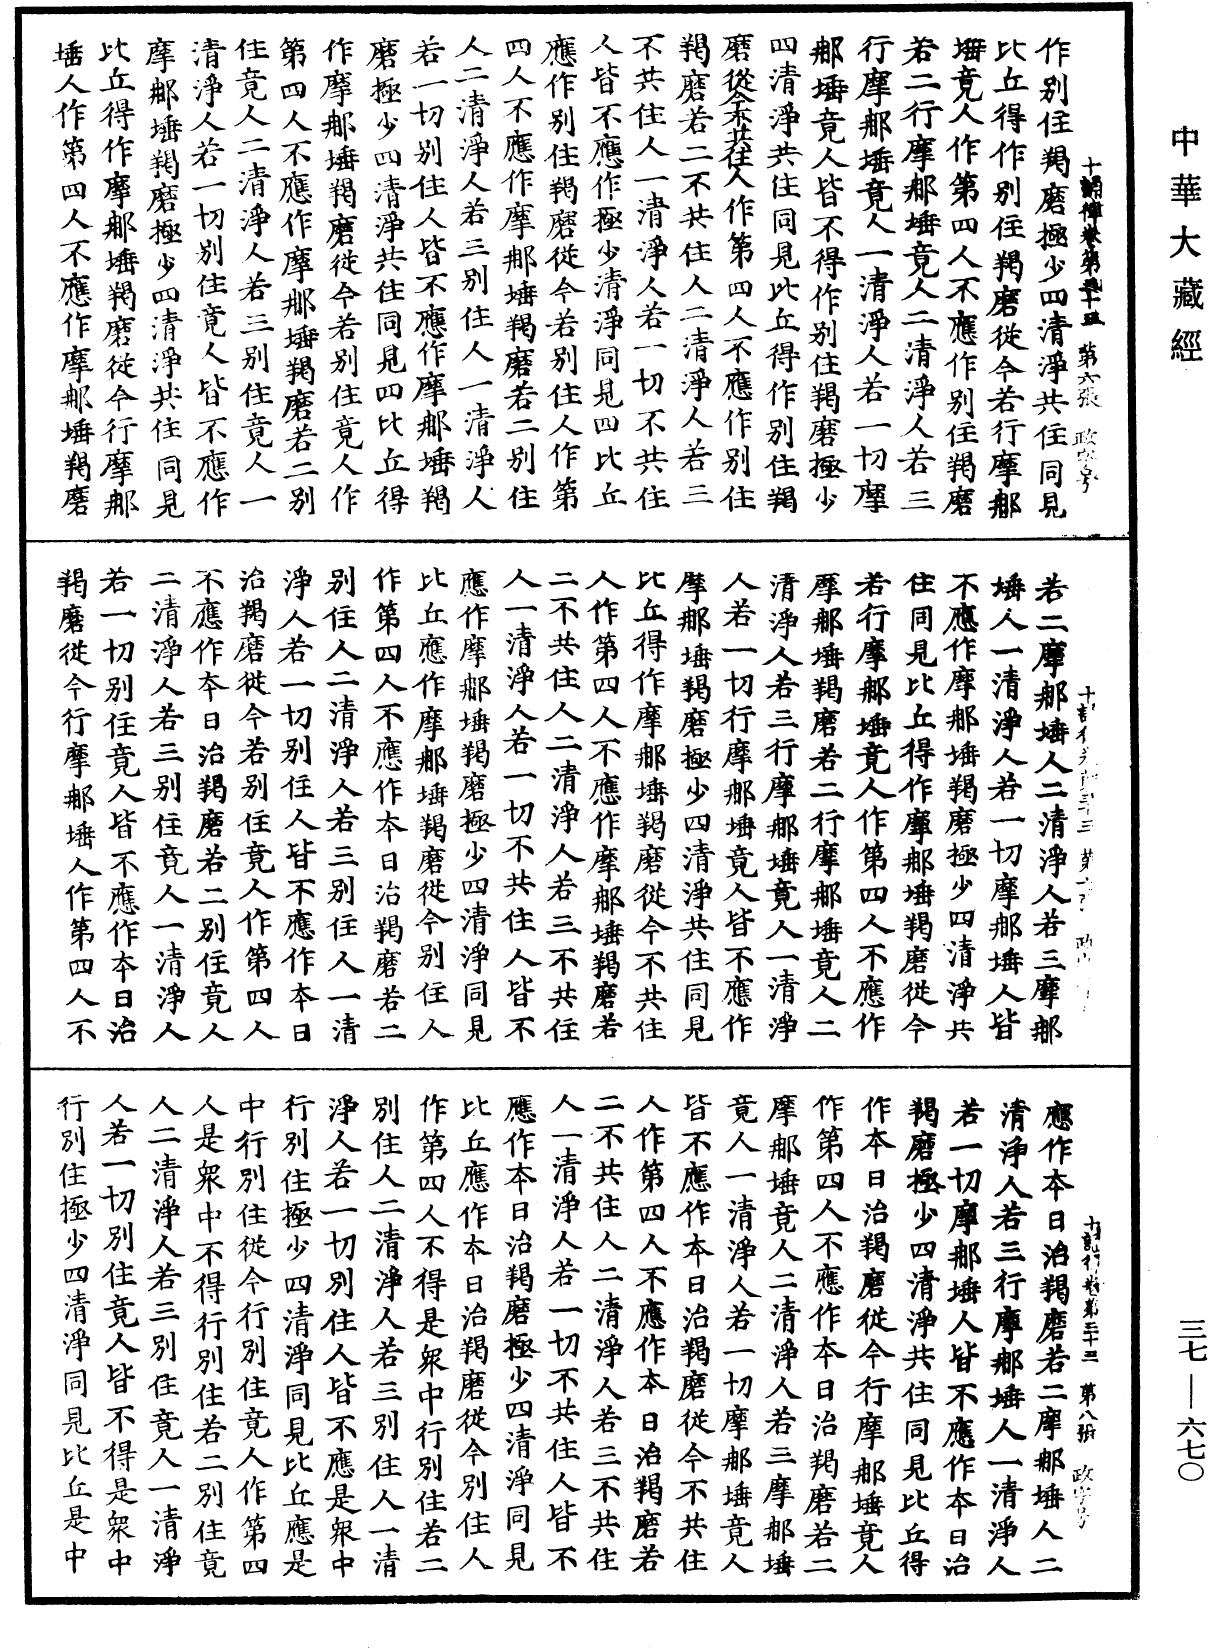 中華大藏經
作別住羯磨極少四清淨共住同見
比丘得作別住羯磨從今若行摩那
埵竟人作第四人不應作別住羯磨
若二行摩那埵竟人二清淨人若三
行摩那埵竟人一清淨人若一切摩
那埵竟人皆不得作別住羯磨極少
四清淨共住同見比丘得作別住羯
磨從今不共住人作第四人不應作別住
羯磨若二不共住人二清淨人若三
不共住人一清淨人若一切不共住
人皆不應作極少清淨同見四比丘
應作別住羯磨從今若別住人作第
四人不應作摩那埵羯磨若二別住
人二清淨人若三別住人一清淨人
若一切別住人皆不應作摩那埵羯
磨極少四清淨共住同見四比丘得
作摩那埵羯磨從今若別住竟人作
第四人不應作摩那埵羯磨若二別
住竟人二清淨人若三別住竟人一
清淨人若一切別住竟人皆不應作
摩那埵羯磨極少四清淨共住同見
比丘得作摩那埵羯磨從今行摩那
埵人作第四人不應作摩那埵羯磨
若二摩那埵人二清淨人若三摩那
埵人一清淨人若一切摩那埵人皆
不應作摩那埵羯磨極少四清淨共
住同見比丘得作摩那埵羯磨從今
若行摩那埵竟人作第四人不應作
摩那埵羯磨若二行摩那埵竟人二
清淨人若三行摩那埵竟人一清淨
人若一切行摩那埵竟人皆不應作
摩那埵羯磨極少四清淨共住同見
比丘得作摩那埵羯磨從今不共住
人作第四人不應作摩那埵羯磨若
二不共住人二清淨人若三不共住
人一清淨人若一切不共住人皆不
應作摩那埵羯磨極少四清淨同見
比丘應作摩那埵羯磨從今別住人
作第四人不應作本日治羯磨若二
別住人二清淨人若三別住人一清
淨人若一切別住人皆不應作本日
治羯磨從今若別住竟人作第四人
不應作本日治羯磨若二別住竟人
二清淨人若三別住竟人一清淨人
若一切別住竟人皆不應作本日治
羯磨從今行摩那埵人作第四人不
應作本日治羯磨若二摩那埵人二
清淨人若三行摩那埵人一清淨人
若一切摩那埵人皆不應作本日治
羯磨極少四清淨共住同見比丘得
作本日治羯磨從今行摩那埵竟人
作第四人不應作本日治羯磨若二
摩那埵竟人二清淨人若三摩那埵
竟人一清淨人若一切摩那埵竟人
皆不應作本日治羯磨從今不共住
人作第四人不應作本日治羯磨若
二不共住人二清淨人若三不共住
人一清淨人若一切不共住人皆不
應作本日治羯磨極少四清淨同見
比丘應作本日治羯磨從今別住人
作第四人不得是衆中行別住若二
別住人二清淨人若三別住人一清
淨人若一切別住人皆不應是衆中
行別住極少四清淨同見比丘應是
中行別住從今行別住竟人作第四
人是衆中不得行別住若二別住竟
人二清淨人若三別住竟人一清淨
人若一切別住竟人皆不得是衆中
行別住極少四清淨同見比丘是中
三七—六七〇